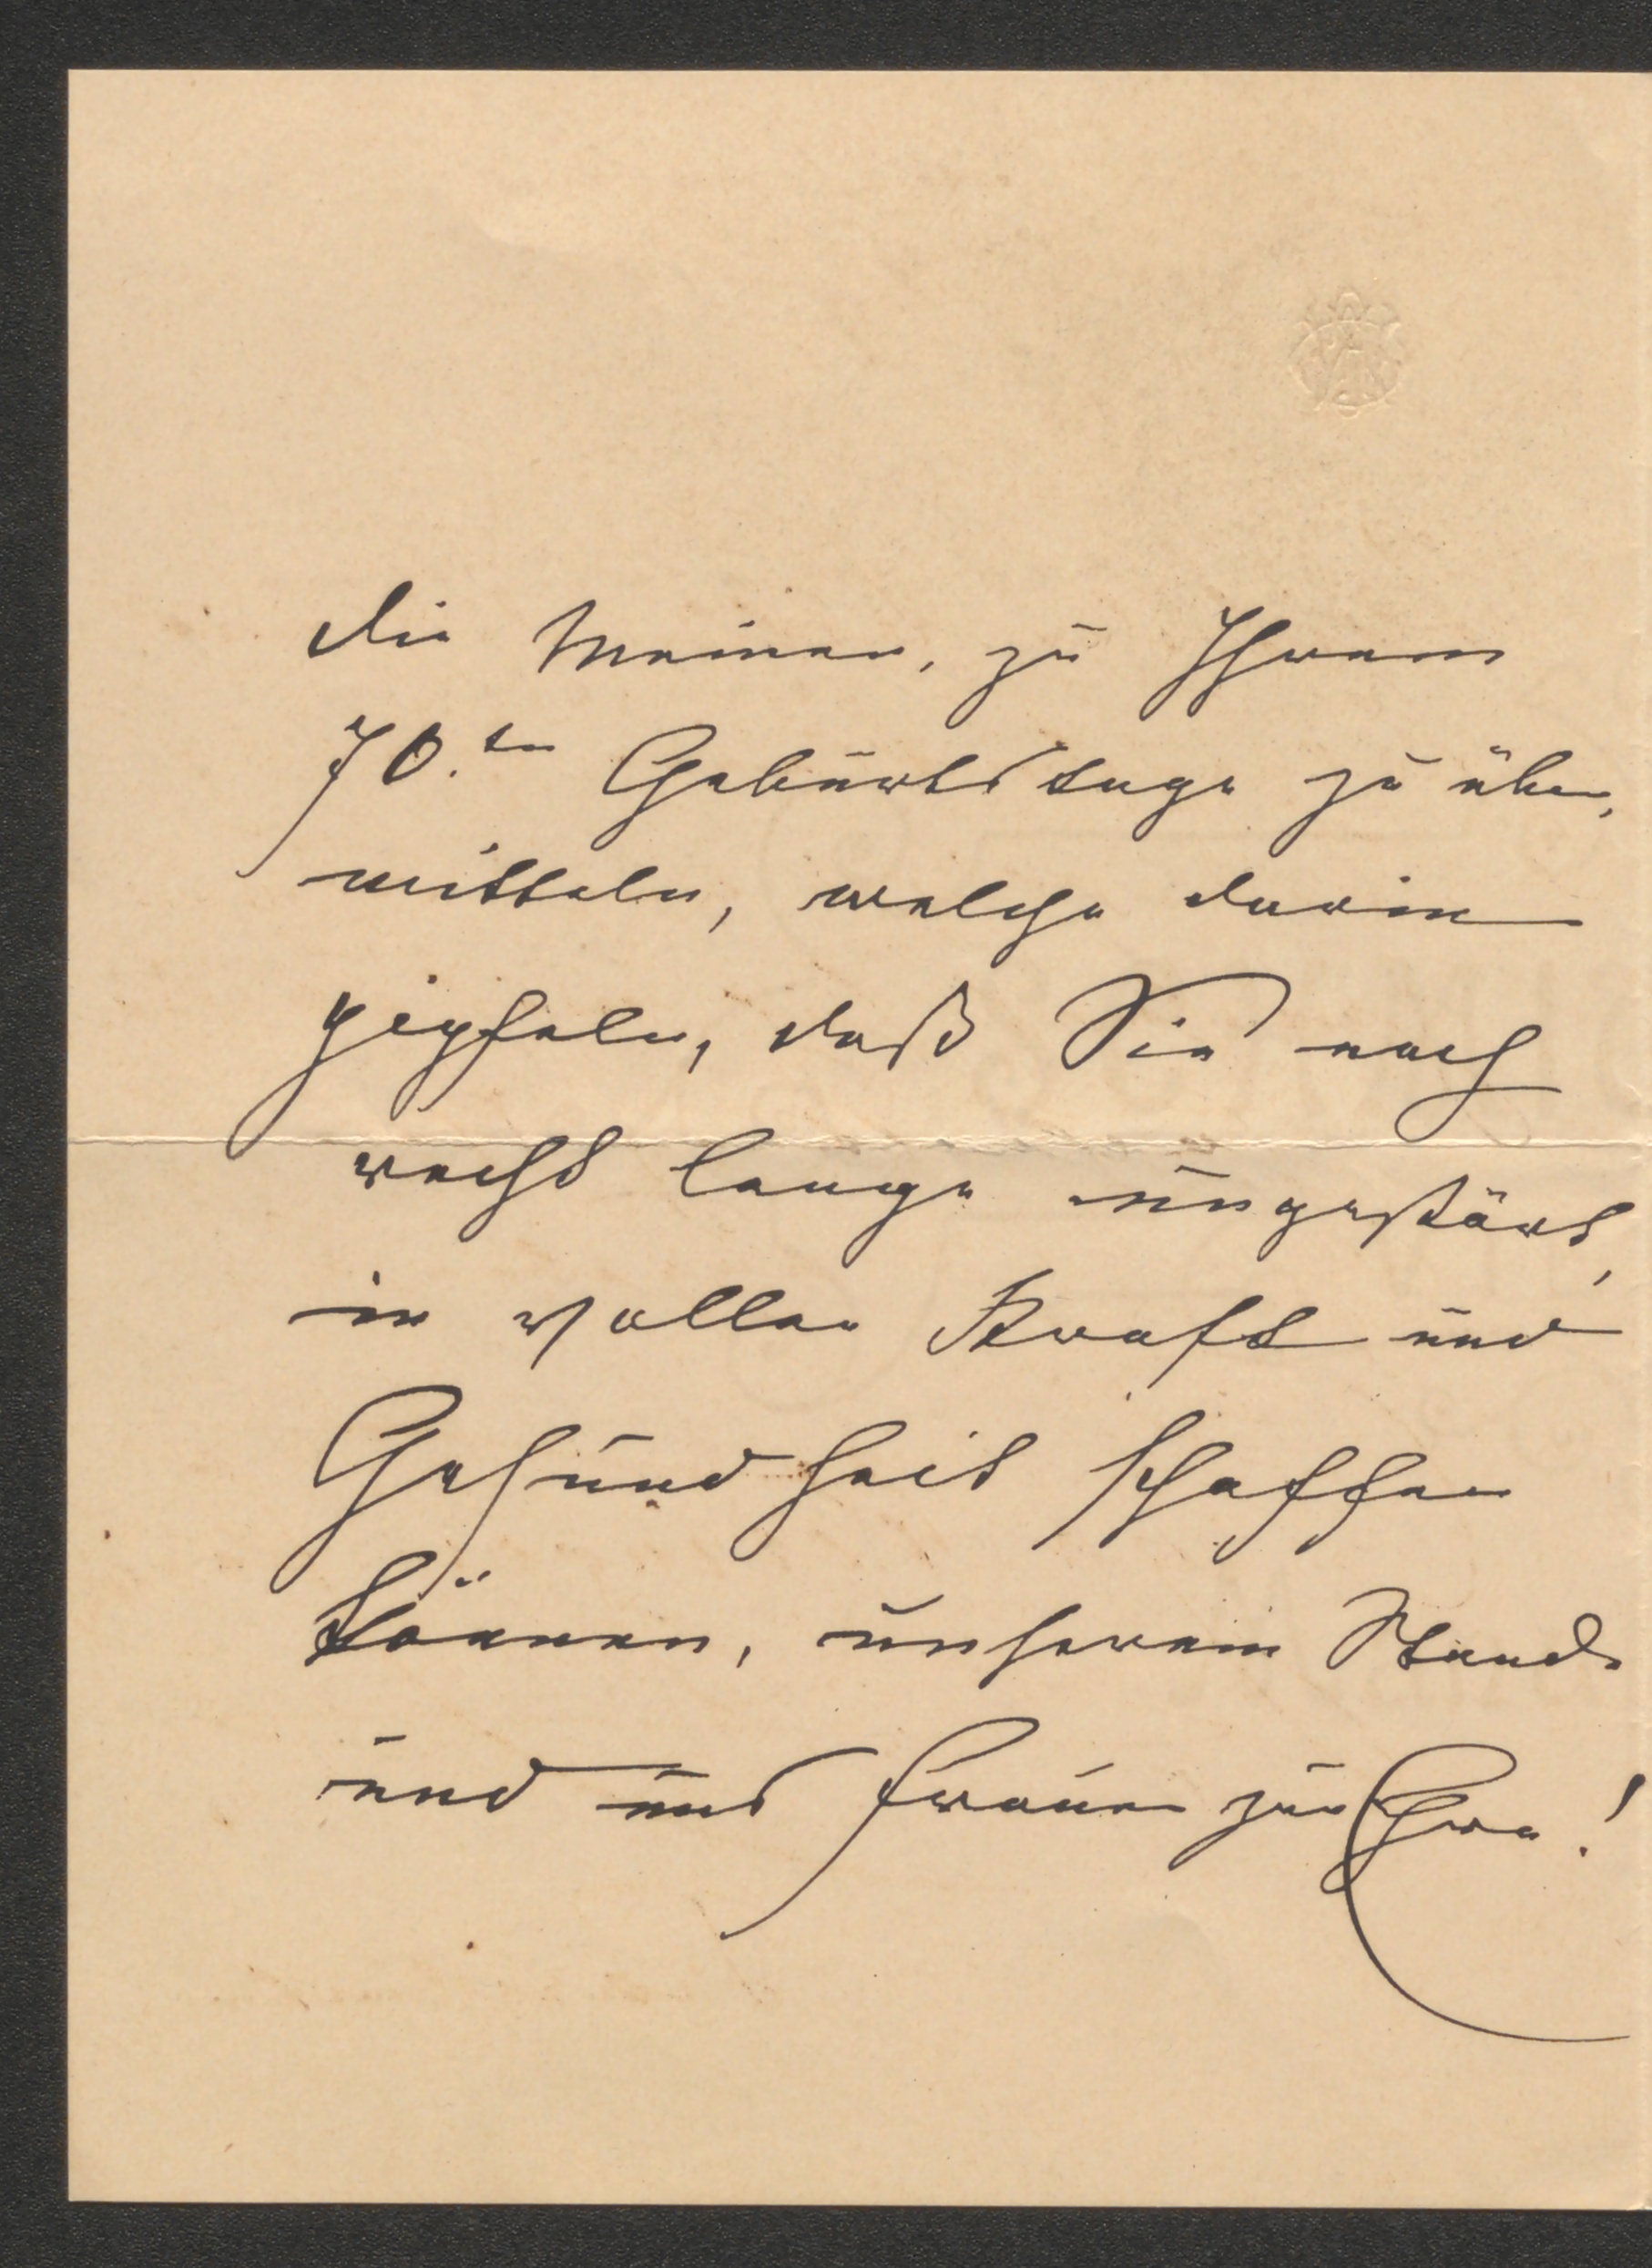 die Meinen, zu Ihrem
70.ten Geburtstage zu über,
mitteln, welche darin
gipfeln, daß Sie noch
recht lange ungestört,
in voller Kraft und
Gesundheit schaffen
können, unserem Stande
und uns Frauen zur Ehre!